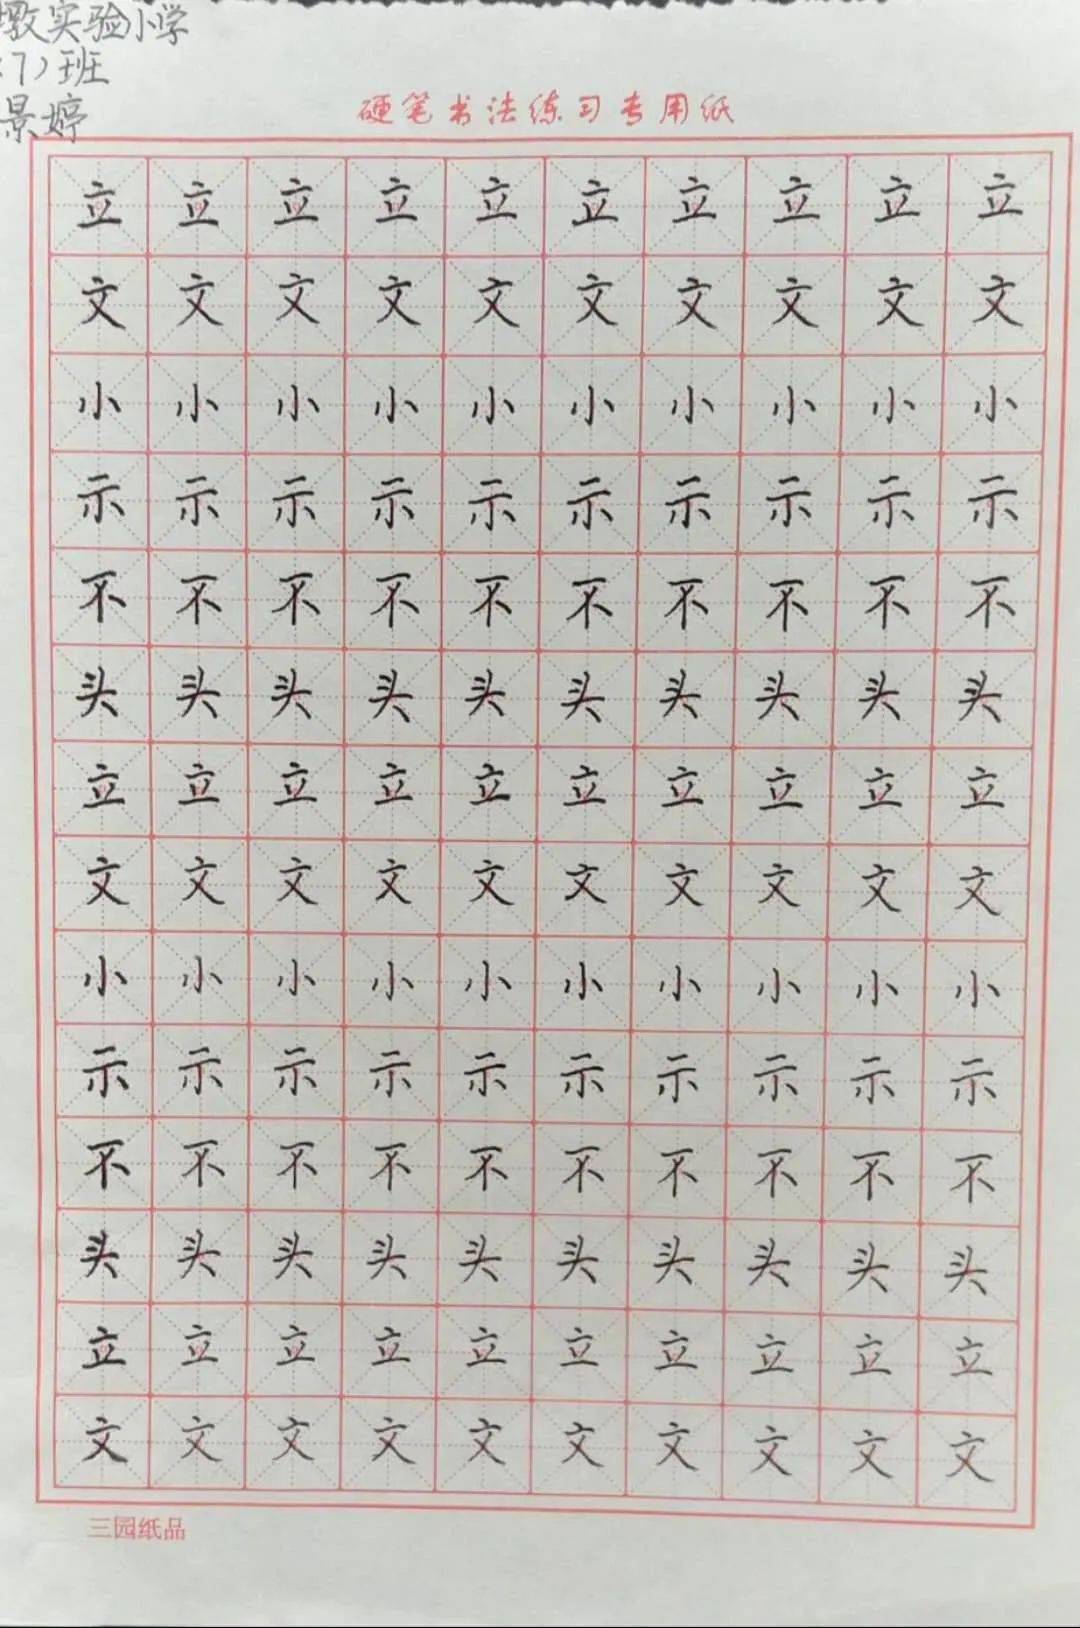 墩实验小学
7）班
景婷
硬笔书法练习专用纸
立立立立立立立立立立
文文文文文文文文文文
小小小小小小小小小小
示示示示示示示示示示
不不不不不不不不不不
头头头头头头头头头头
立立立立立立立立立立
文文文文文文文文文文
小小小小小小小小小小
示示示示示示示示示示
不不不不不不不不不不
头头头头头头头头头头
立立立立立立立立立立
文文文文文文文文文文
三园纸品